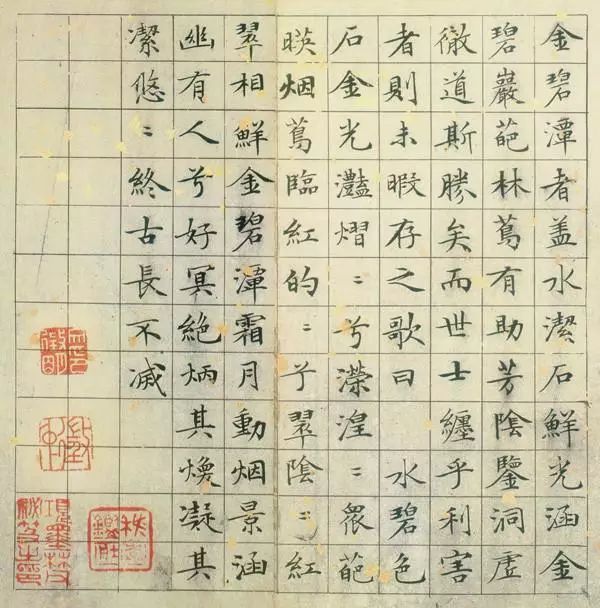 金碧潭者盖水潔石鮮光涵金
碧巖葩林蔦有助芳陰鑒洞虛
徹道斯勝矣而世士纏乎利害
者則未暇存之歌曰 水碧色
石金光灩熠〻兮濴湟〻衆葩
暎烟蔦臨紅的〻兮翠陰〻紅
翠相鮮金碧潭霜月動烟景涵
幽有人兮好冥絶炳其煥凝其
潔悠〻終古長不滅